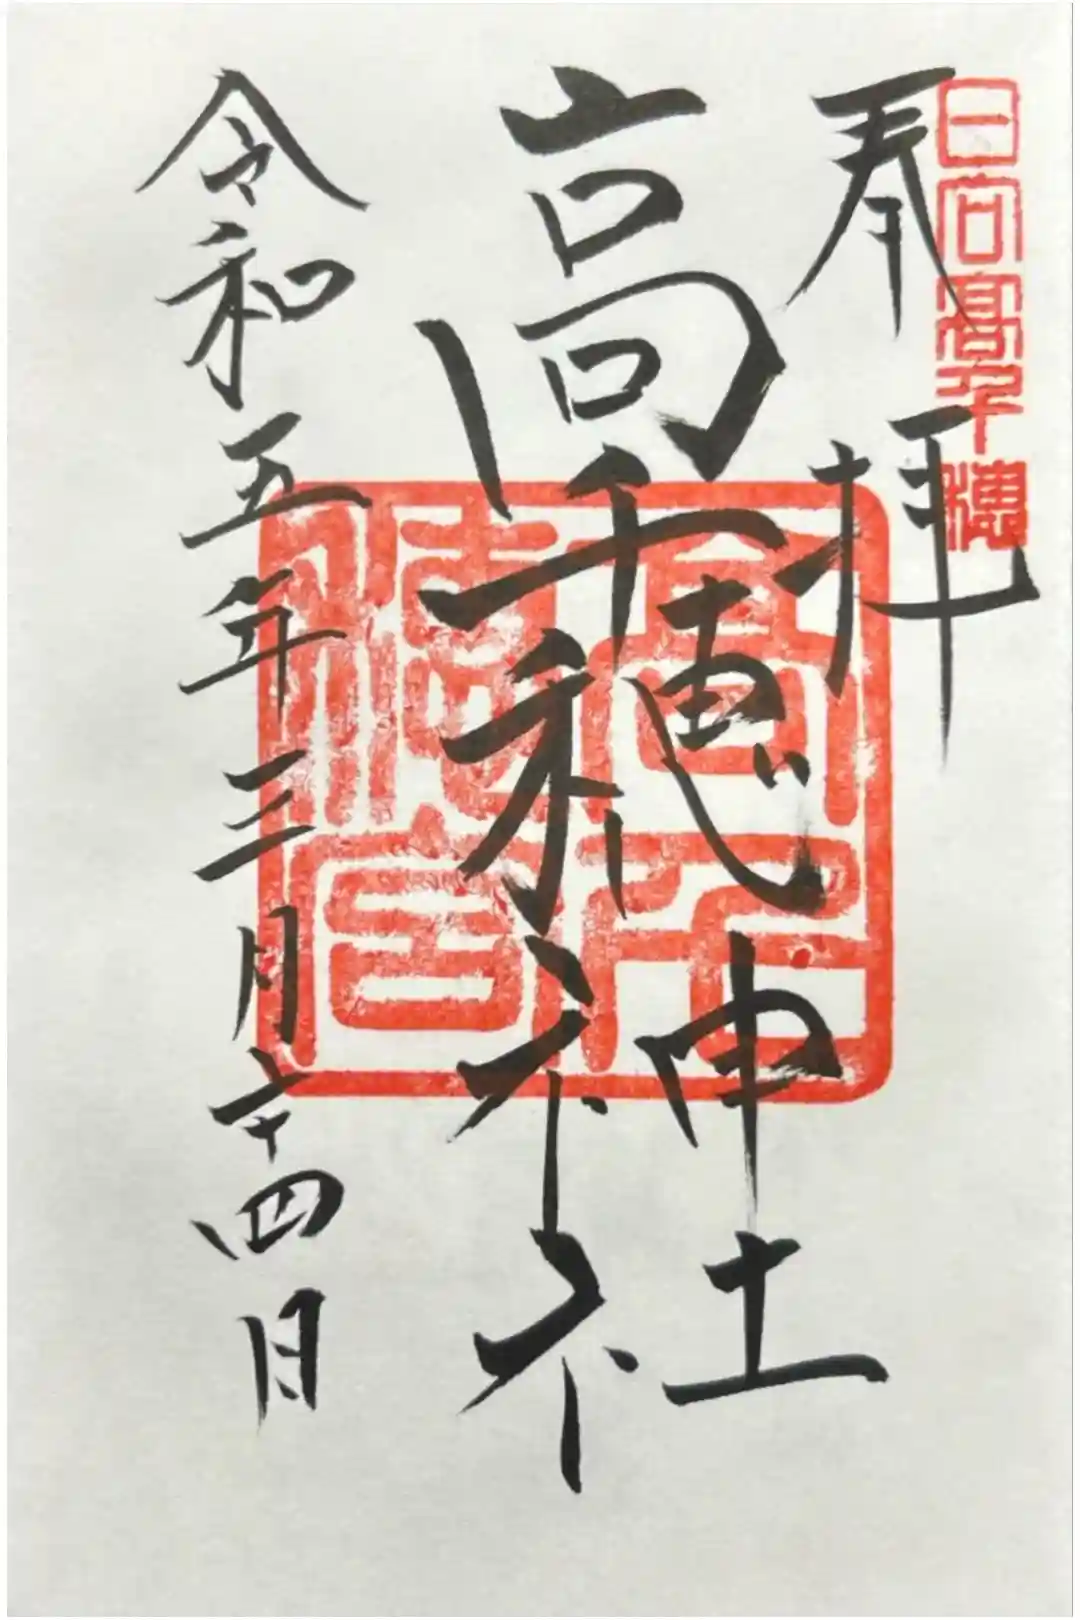 日向髙千穂
奉拝
高千穂神社
高千
穂宮
令和五年三月二十四日